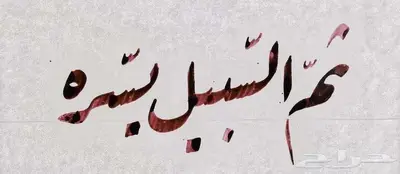 ثمّ السّبيل يسّره
حراج